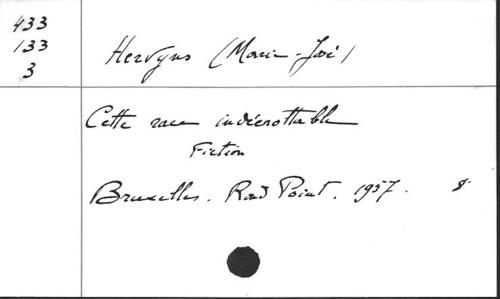 433
133
3
Hervyns (Marie-José)
Cette race indécrottable
Fiction
Bruxelles. Rond Point. 1957. 8°